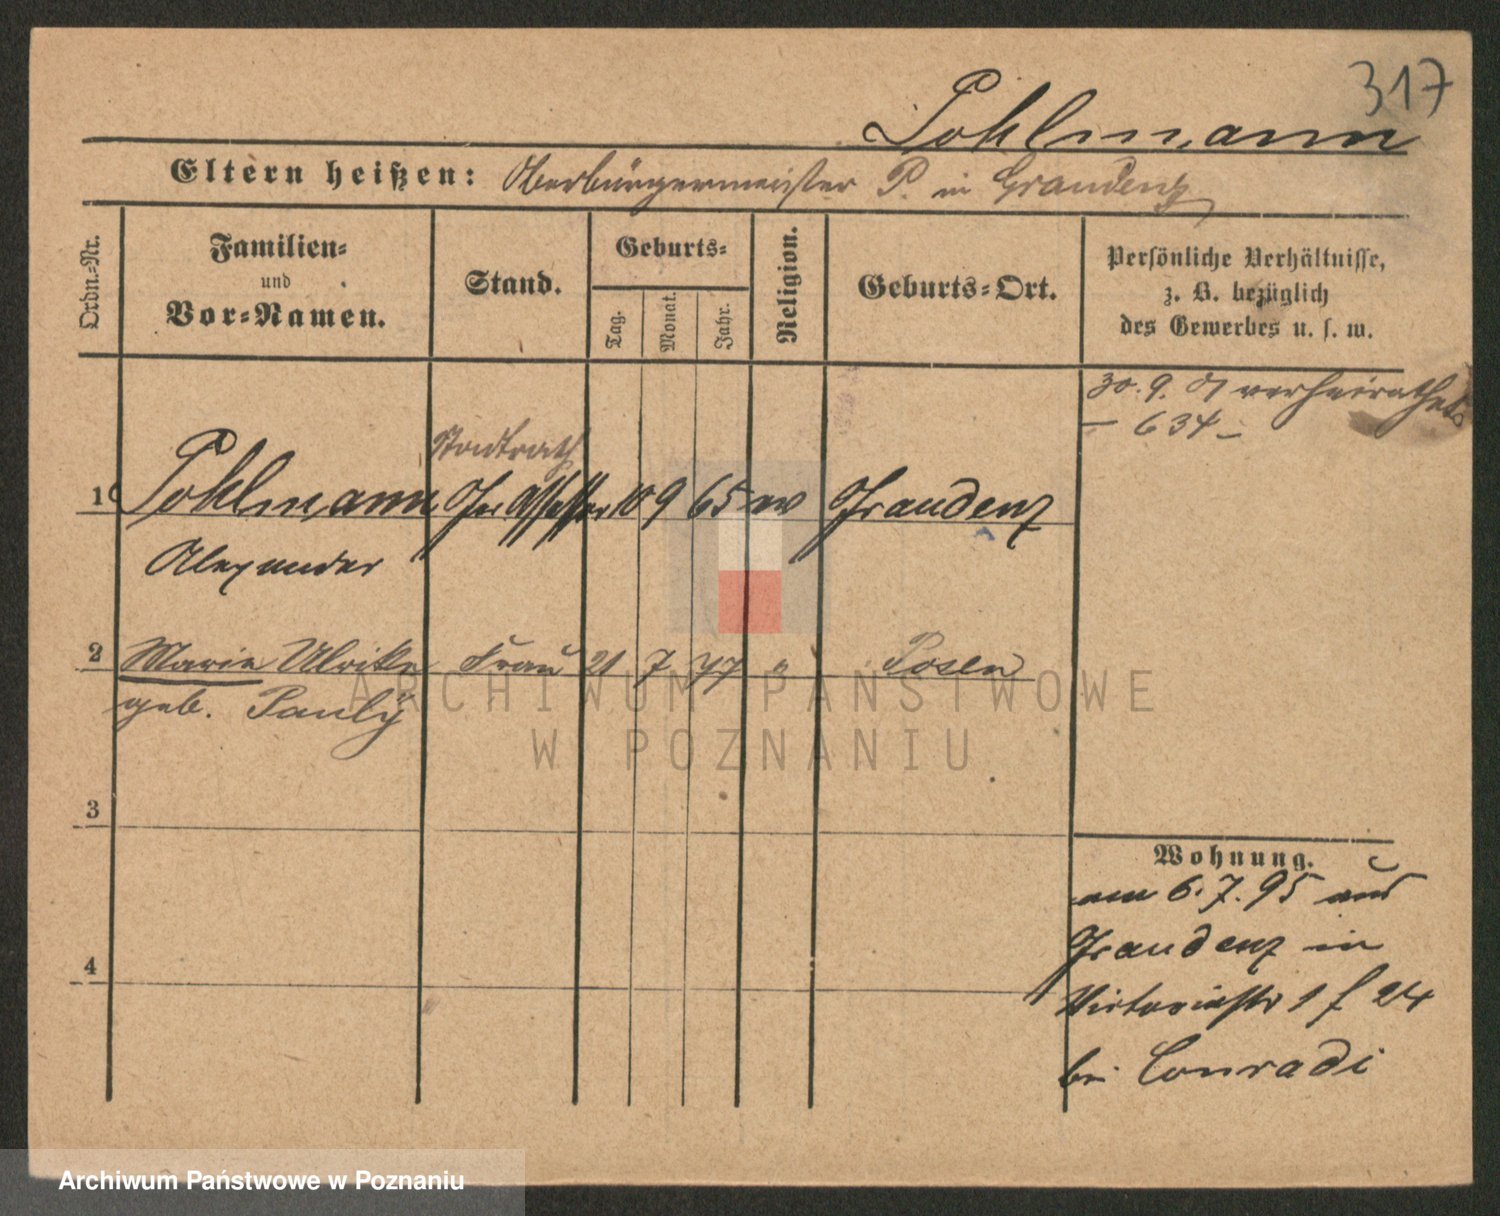 317
Pohlmann
Eltern heißen: Oberbürgermeister P. in Graudenz
Ordn.-Nr.
Familien-
und
Vor-Namen.
Stand.
Geburts-
Tag.
Monat.
Jahr.
Religion.
Geburts-Ort.
Persönliche Verhältnisse,
z. B. bezüglich
des Gewerbes u. s. w.
30. 9. 01 verheirathet
– 634 –
Stadtrath
1 Pohlmann Ger Assessor 10 9 65 ev Graudenz
Alexander
2 Marie Ulrike Frau 21 7 77 " Posen
geb. Pauly
3
4
Wohnung.
am 6. 7. 95 aus
Graudenz in
Victoriastr 24
bei Conradi
ARCHIWUM PAŃSTWOWE
W POZNANIU
Archiwum Państwowe w Poznaniu